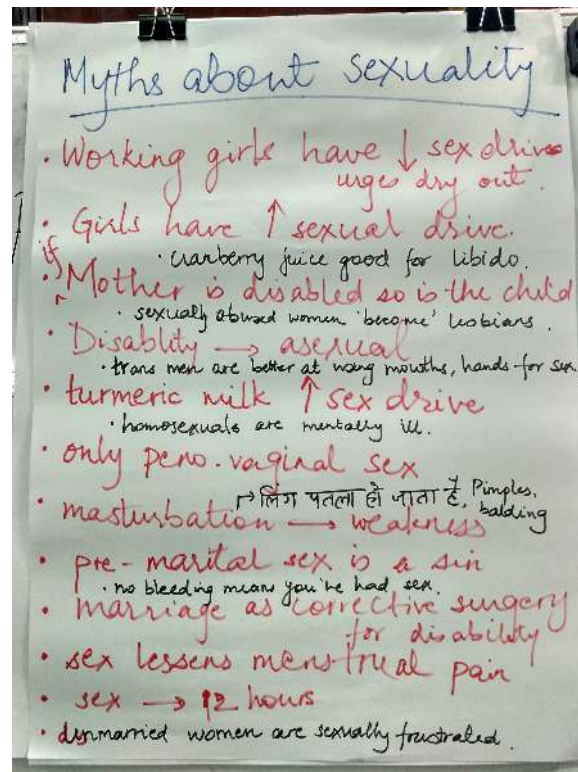 Myths about sexuality
• Working girls have ↓ sex drive
urges dry out.
• Girls have ↑ sexual drive.
• cranberry juice good for libido.
if
• Mother is disabled so is the child
• sexually abused women 'become' lesbians.
• Disablity → asexual
• trans men are better at using mouths, hands for sex
• turmeric milk ↑ sex drive
• homosexuals are mentally ill.
• only peno-vaginal sex
→ लिंग पतला हो जाता है, Pimples,
balding
• masturbation → weakness
• pre-marital sex is a sin
• no bleeding means you've had sex.
• marriage as corrective surgery
for disability
• sex lessens menstrual pain
• sex → 12 hours
• unmarried women are sexually frustrated.